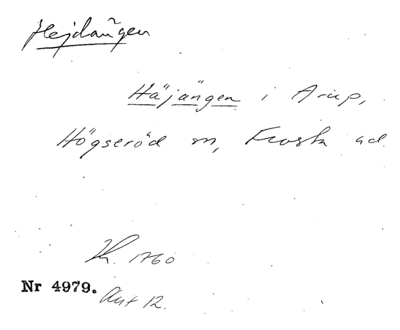 Hejdangen
Häjängen i Arup,
Högseröd sn, Frosta hd
Kr. 1760
Nr 4979.
Akt 12.